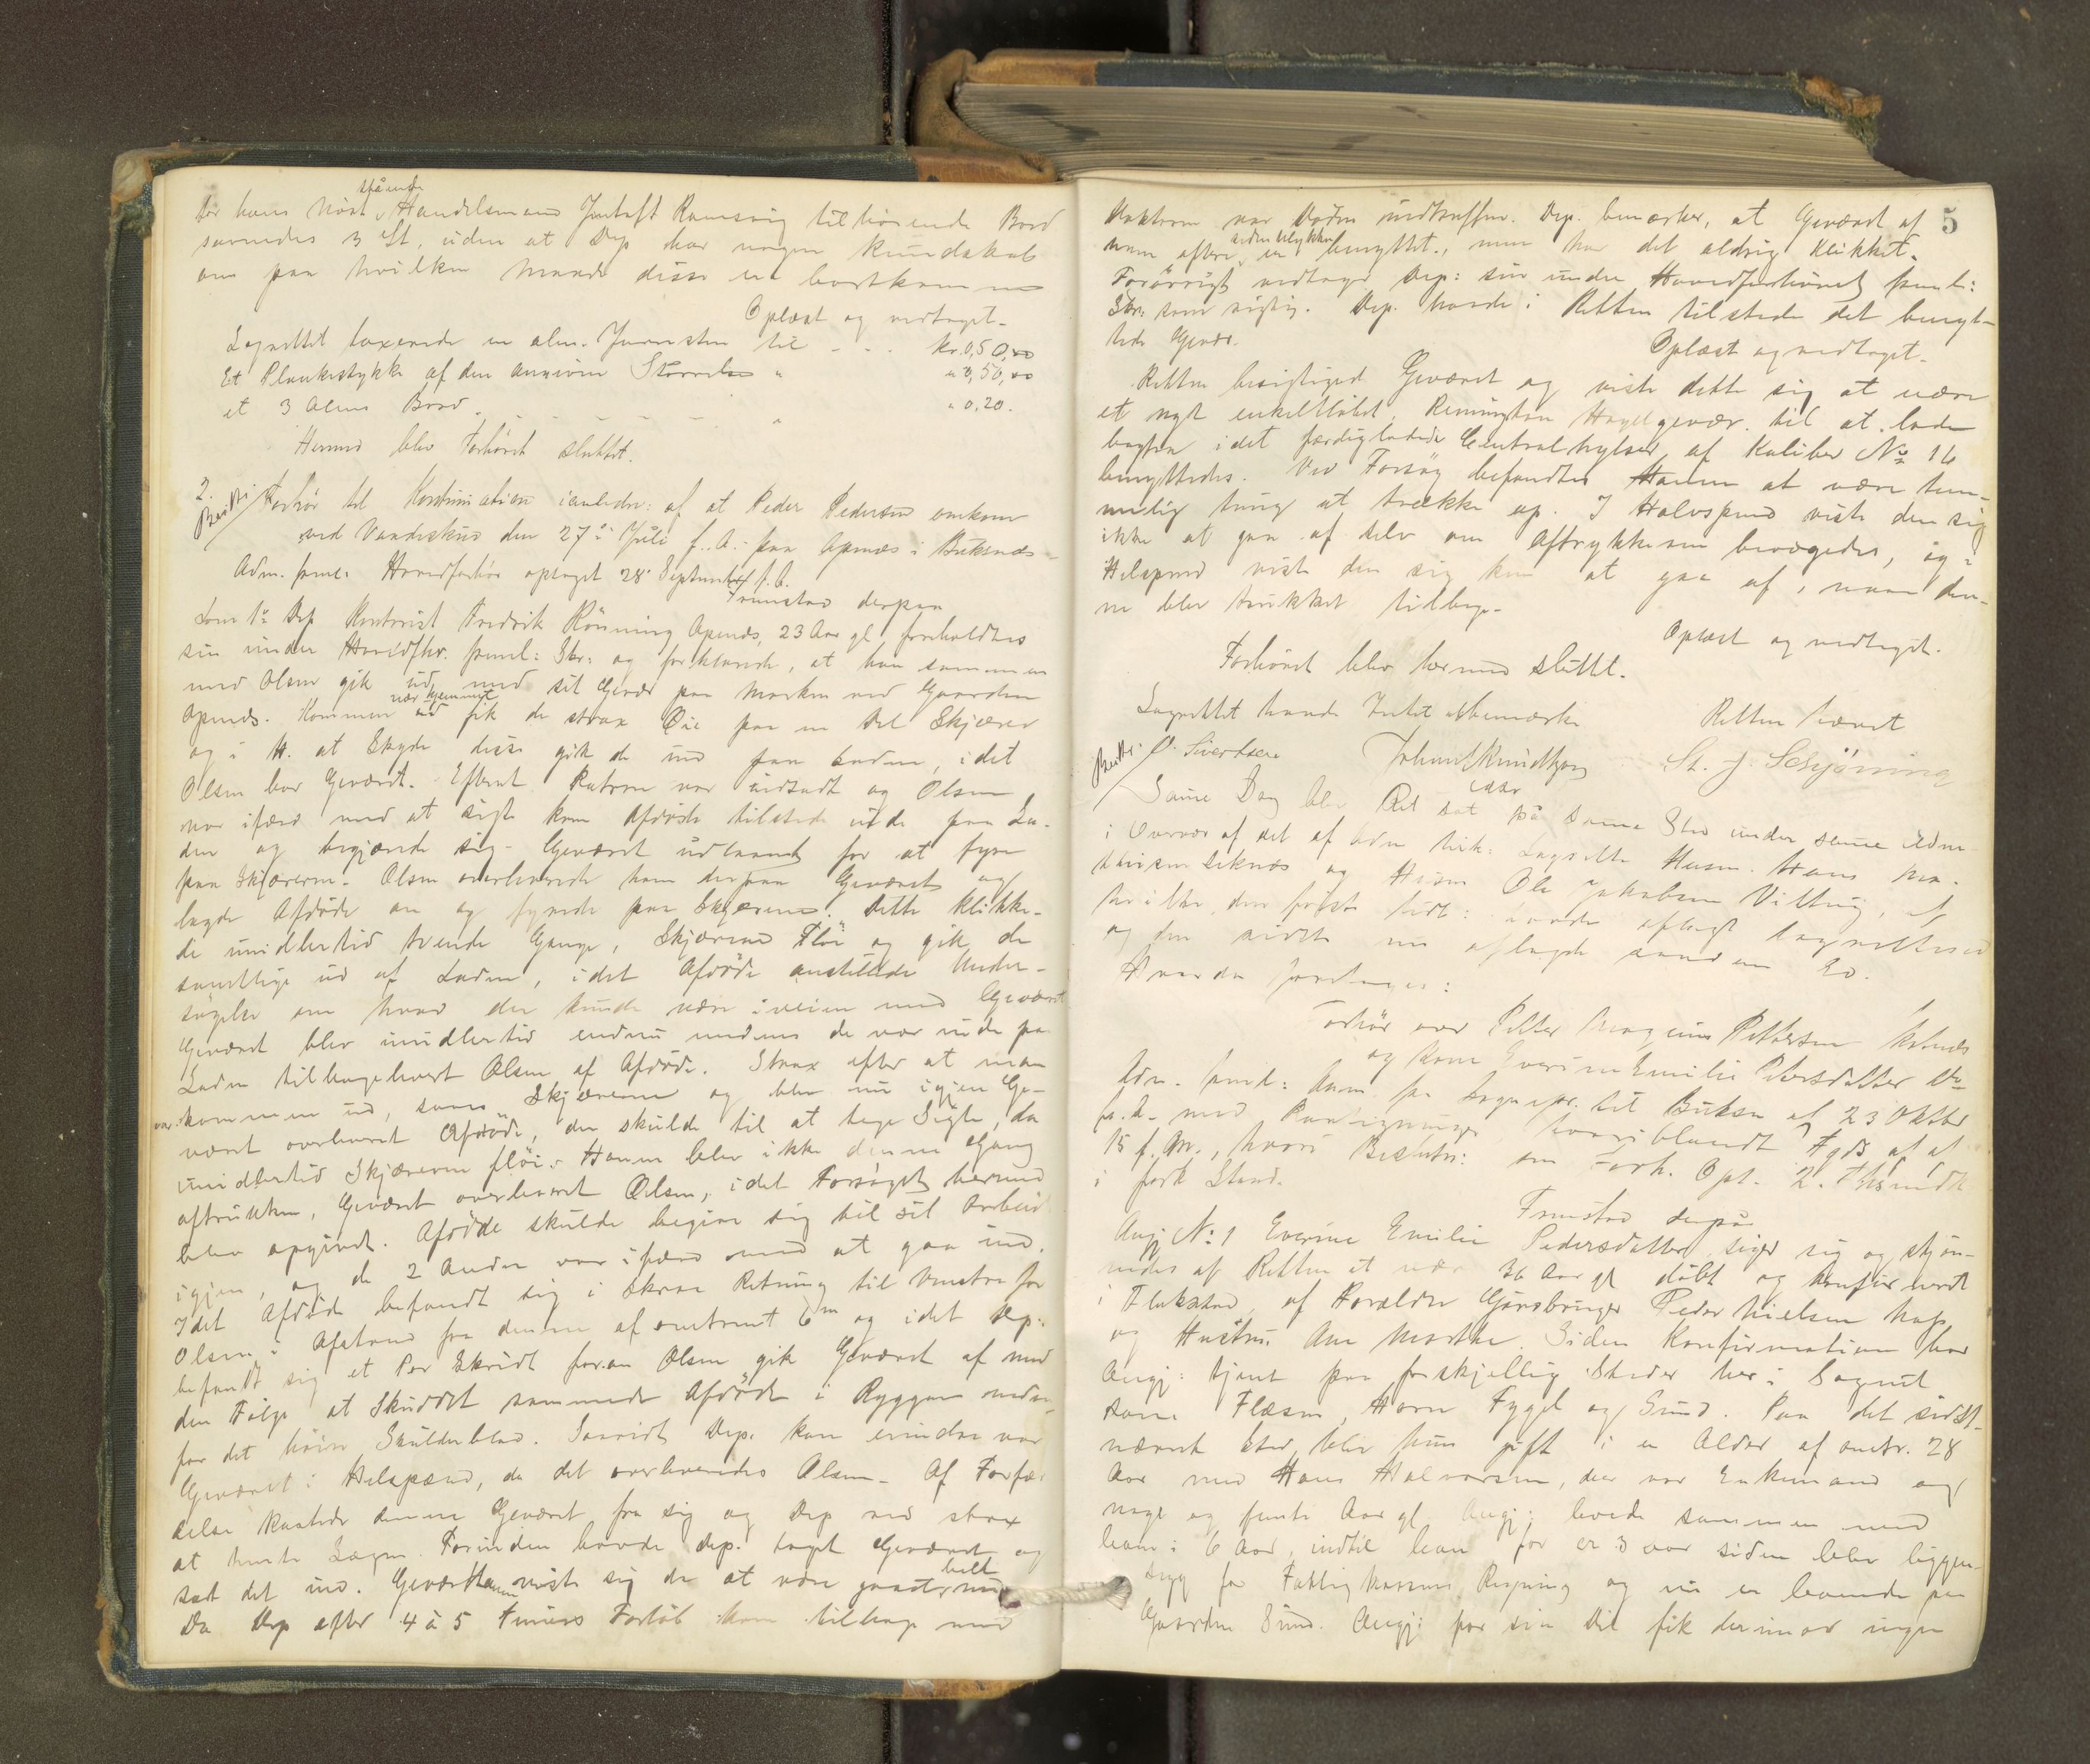 for hans Nöst, Handelsmand Gustaft Ramsvig tilhörende Bord
stående
savnedes 3 St., uden at Dep har nogen Kundskab
om paa hvilken Maade disse er bortkommne
Oplæst og vedtaget.
Lagrettet taxerede en alm. Jernsten til - - - kr. 0,50,
Et Plankestykke af den angivne Störrelse " " 0,50,
et 3 Alens Bord - - - - " " 0.20.
Hermed blev Forhöret sluttet.
2.
Forhör til Kontinuation i anledn: af at Peder Pedersen omkom
ved Vaadeskud den 27de Juli f. A. paa Apnæs i Buksnæs -
Adm. freml. Hovedforhör optaget 28 September f. A.
Fremstod derpaa
Som 1ste Dep Kontorist Fredrik Rönning Apnæs, 23 Aar gl. foreholdtes
sin under Hovedfhr. freml: Skr: og forklarede, at han sammen
med Olsen gik ud med sit Gevær paa Marken ved Gaarden
nær hjemmet
Apnæs. Kommen ud fik de strax Öie paa en Del Skjærer
og i H. at Skyde disse gik de ind paa Laden, i det
Olsen bar Geværet. Efterat Patron var indsadt og Olsen
var ifærd med at sigte kom Afdöde tilstede inde paa La-
den og begjærede sig Geværet udlaant for at fyre
paa Skjærerne. Olsen overleverede ham derpaa Geværet og
lagde Afdöde an og fyrede paa Skjærerne. Dette klikke-
de imidlertid tvende Gange, Skjærerne Flöi og gik de
samtlige ud af Laden, i det Afdöde anstillede Under-
sögelse om hvad der kunde være iveien med Geværet
Geværet blev imidlertid endnu medens de var inde paa
Laden tilbageleveret Olsen af Afdöde. Strax efter at man
var kommen ud, saaes Skjærerne og blev nu igjen Ge-
været overleveret Afdöde, der skulde til at tage Sigte, da
imidlertid Skjærerne flöi. Hanen blev ikke denne Gang
aftrukken, Geværet overleveret Olsen, idet Forsöget hermed
blev opgivet. Afdöde skulde begive sig til sit Arbeid
igjen, og de 2 Andre var ifærd med at gaa ind.
Idet Afdöde befandt sig i skraa Retning til Venstre for
Olsen i Afstand fra denne af omtrent 6 m og idet Dep.
befandt sig et Par Skridt foran Olsen gik Geværet af med
den Fölge at Skuddet rammede Afdöde i Ryggen neden-
for det höire Skulderblad. Saavidt Dep. kan erindre var
Geværet i Helspænd, da det overleveredes Olsen. Af Forfær
delse kastede denne Geværet fra sig og Dep ned strax
at hente Lægen. Forinden havde Dep. taget Geværet og
sat det ind. Geværhanen viste sig da at være gaaet helt ned
Da Dep efter 4 à 5 Timers Forlöb kom tilbage med
5
Doktoren var Döden indtruffen. Dep. bemærker, at Geværet af
ham oftere siden Ulykken er benyttet, men har det aldrig klikket.
Forövrigt vedtager Dep: sin under Hovedforhöret freml:
Skr: som rigtig. Dep. havde i Retten tilstede det benyt-
tede Gevær.
Oplæst og vedtaget.
Retten besigtiged Geværet og viste dette sig at være
et nyt enkeltlöbet, Remington Haglgevær til at lade
bagfra idet færdigladede Centralhylser af Kaliber No 16
benyttedes. Ved Forsög befandtes Hanen at være tem-
melig tung at trække op. I Halvspænd viste den sig
ikke at gaa af selv om Aftrækkeren bevægedes, og i
Helspænd viste den sig kun at gaa af, naar den-
ne blev trukket tilbage.
Oplæst og vedtaget.
Forhöret blev hermed sluttet.
Lagrettet havde Intet at bemærke Retten hævet
P. Sivertsen Johan Knudtzon St. J. Schjöning
Samme Dag blev Ret sat på samme Sted under samme Adm
i Overvær af det af Adm tilk: Lagrette Husm. Hans
og Husm Ole Jakobsen Vitting, af
hvilke den förste tidl: havde aflagt Lagretteed
og den sidste nu aflagde saadan Ed.
Hvorda foretages:
Forhör over Petter Magnus Pettersen
og Kone Everine Emilie Pedersdatter
Adm. freml: Anm. fra Lagspr. til Buksn af 23 Oktbr
f. A. med Paategninger hvoriblandt Fgds af
15 f. M., hvori Beslutn: om Forh. Opt.
i fork. Stand.
Fremstod derpå
Angj. No 1 Everine Emilie Pedersdatter siger sig og skjön-
nedes af Retten at være 36 Aar gl döbt og konfirmeret
i Flakstad, af Forældre Gårdbruger Peder Nielsen
og Hustru Ane Marthe. Siden Konfirmationen har
Angj: tjent paa forskjellige Steder her i Sognet
som Flæsen, Horn Fygel og Sund. Paa det sidst-
nævnte Sted blev hun gift i en Alder af omtr. 28
Aar med Hans Halvorsen, der var Enkemand og
noge og femti Aar gl. Angj: levede sammen med
ham i 6 Aar, indtil han for ca 3 aar siden blev liggen-
syg for Fattigkassens Regning og nu er boende paa
Gaarden Sund. Angj: for sin Del fik derimod ingen